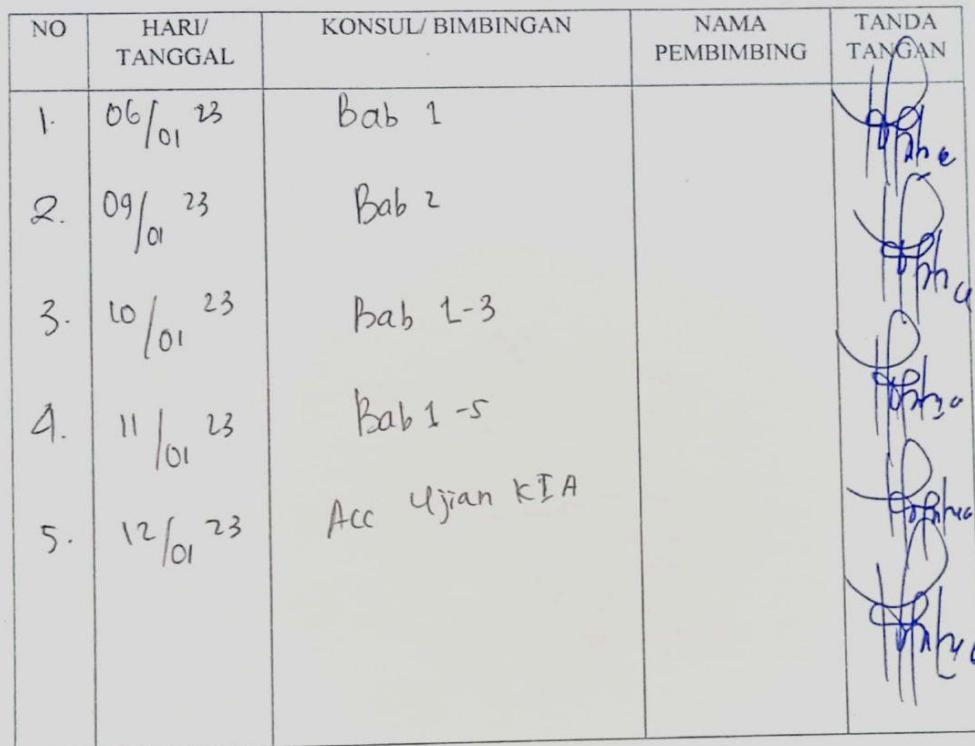 NO HARI/ TANGGAL KONSUL/ BIMBINGAN NAMA PEMBIMBING TANDA TANGAN
1. 06/01 23 Bab 1
2. 09/01 23 Bab 2
3. 10/01 23 Bab 1-3
4. 11/01 23 Bab 1-5
5. 12/01 23 Acc Ujian KIA